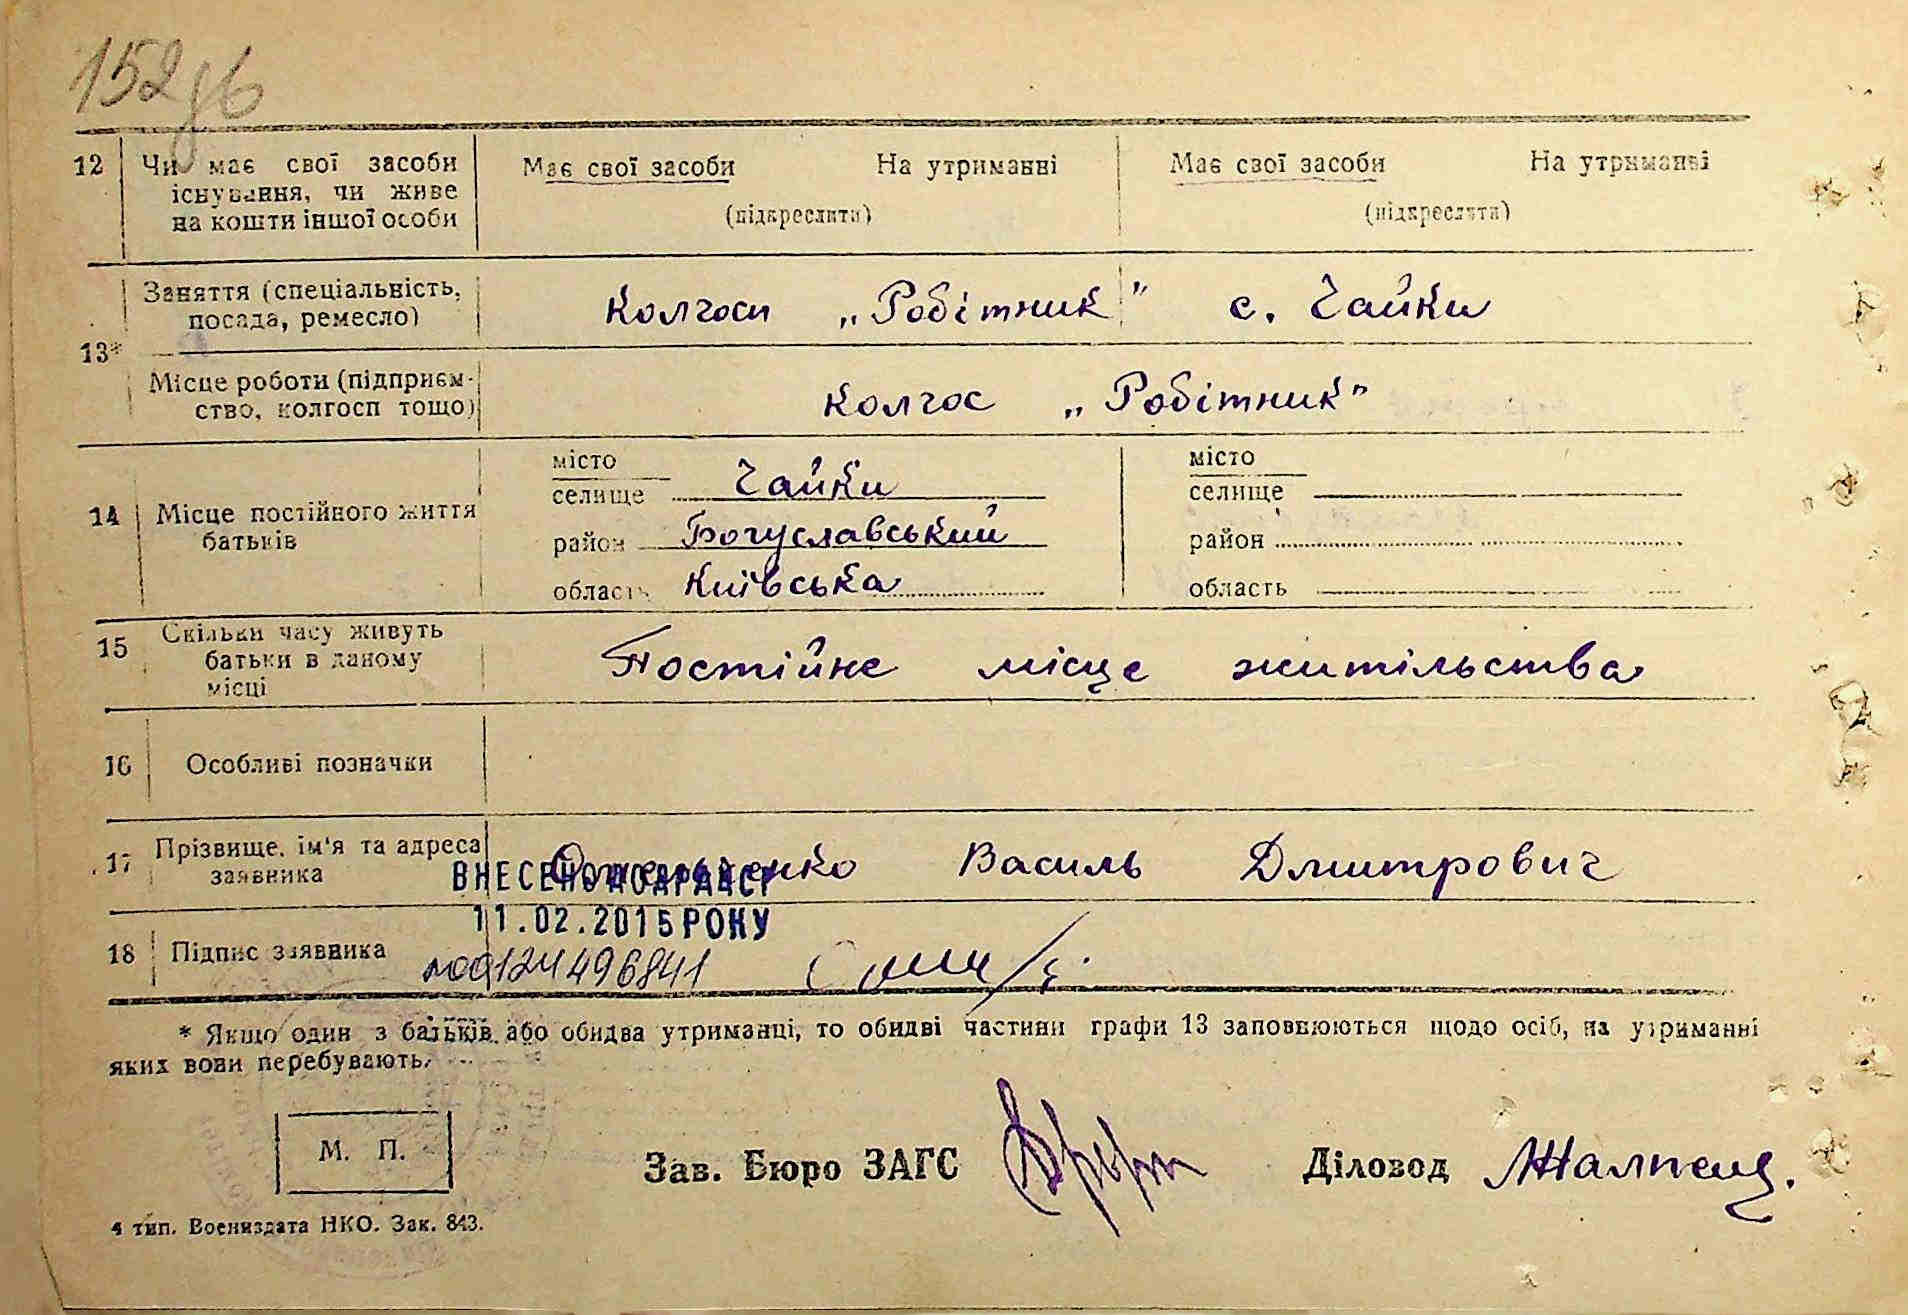 152 зв
12 Чи має свої засоби існування, чи живе на кошти іншої особи
Має свої засоби На утриманні
(підкреслити)
Має свої засоби На утриманні
(підкреслити)
13*
Заняття (спеціальність, посада, ремесло)
Колгосп „Робітник" с. Чайки
Місце роботи (підприємство, колгосп тощо)
Колгос „Робітник"
14 Місце постійного життя батьків
місто
селище Чайки
район Богуславський
область Київська
місто
селище
район
область
15 Скільки часу живуть батьки в даному місці
Постійне місце жительства
16 Особливі позначки
17 Прізвище, ім'я та адреса заявника
Василь Дмитрович
ВНЕСЕНО ДО ДРАЦСГ
11.02.2015 РОКУ
18 Підпис заявника
№00124496841
* Якщо один з батьків або обидва утриманці, то обидві частини графи 13 заповнюються щодо осіб, на утриманні
яких вони перебувають.
М. П.
Зав. Бюро ЗАГС
Діловод
4 тип. Воениздата НКО. Зак. 843.